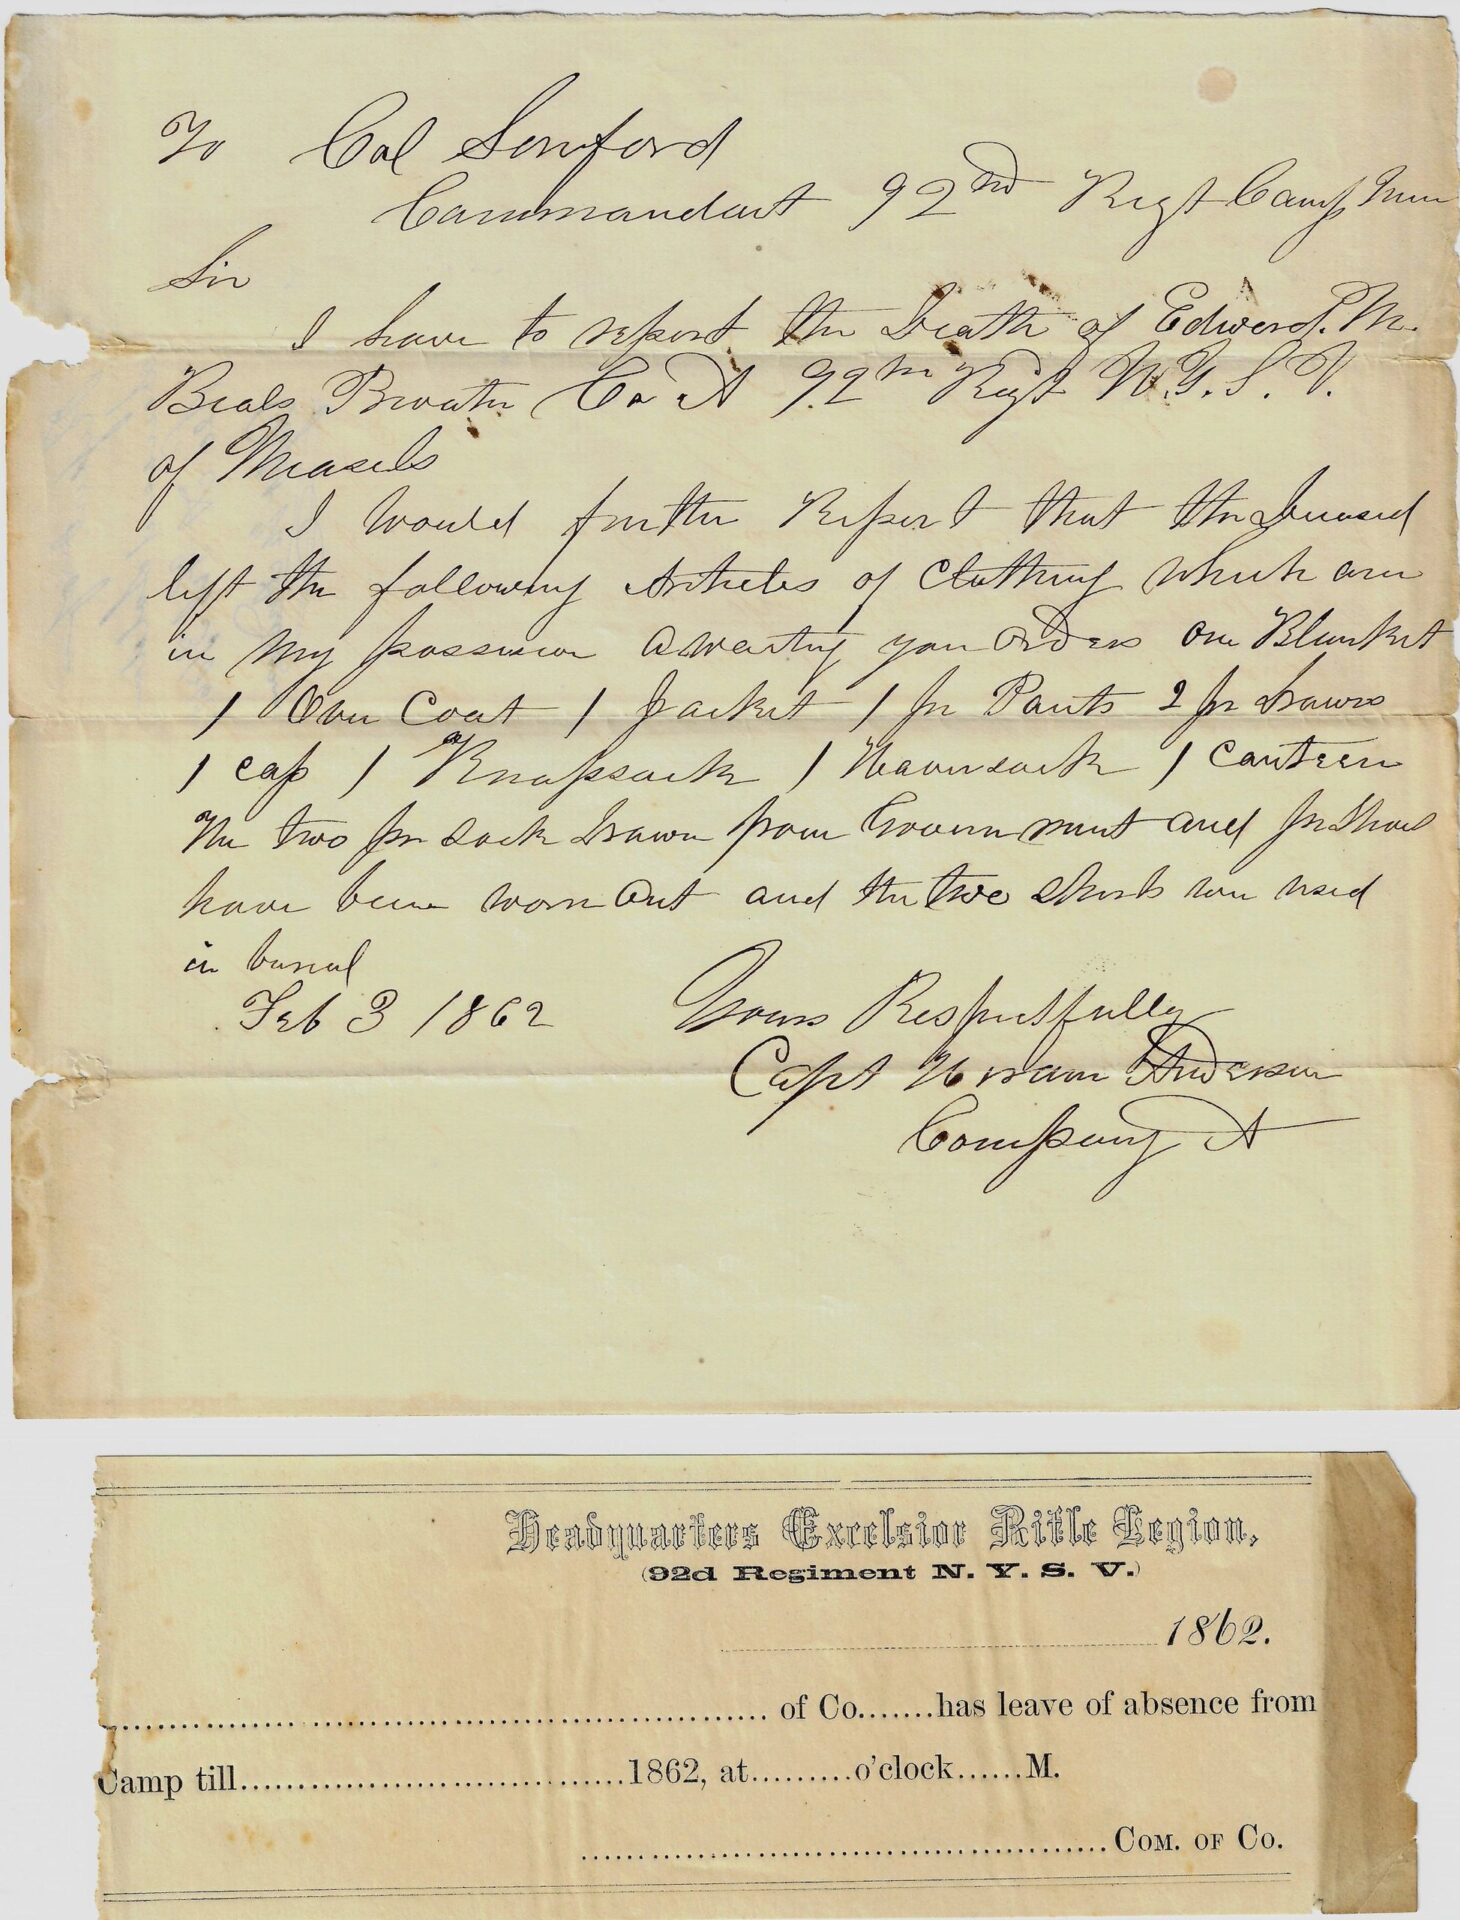 To Col Sanford
Commandant 92nd Regt Camp
Sir
I have to report the Death of Edward. M.
Beals Private Co A 92nd Regt N.Y.S.V.
of Measels
I would further Report that the Deceased
left the following Articles of Clothing which are
in my possession awaiting your orders one Blanket
1 Over Coat 1 Jacket 1 Pr Pants 2 Pr Drawrs
1 cap 1 Knapsack 1 Haversack 1 Canteen
The two pr sock Drawn from Government and Pr Shoes
have been worn Out and the two Shirts were used
in burial
Feb 3 1862 Yours Respectfully
Capt Hiram Anderson
Company A
Headquarters Excelsior Rifle Legion,
(92d Regiment N. Y. S. V.)
1862.
of Co.......has leave of absence from
Camp till..................................1862, at.........o'clock......M.
COM. OF CO.